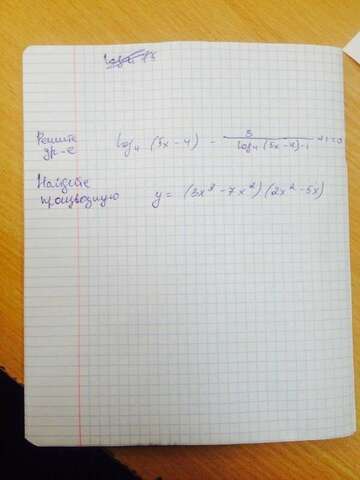 Решите log₄ (5x-4) - 3/(log₄ (5x-4)-1) +1=0
ур-е
Найдите
производную y = (3x⁸ - 7x²)(2x² - 5x)